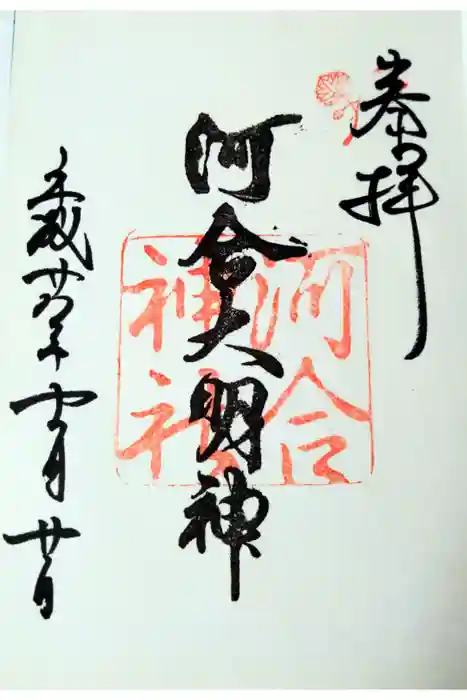 奉拝
河合大明神
河合
神社
平成廿 年 月廿日